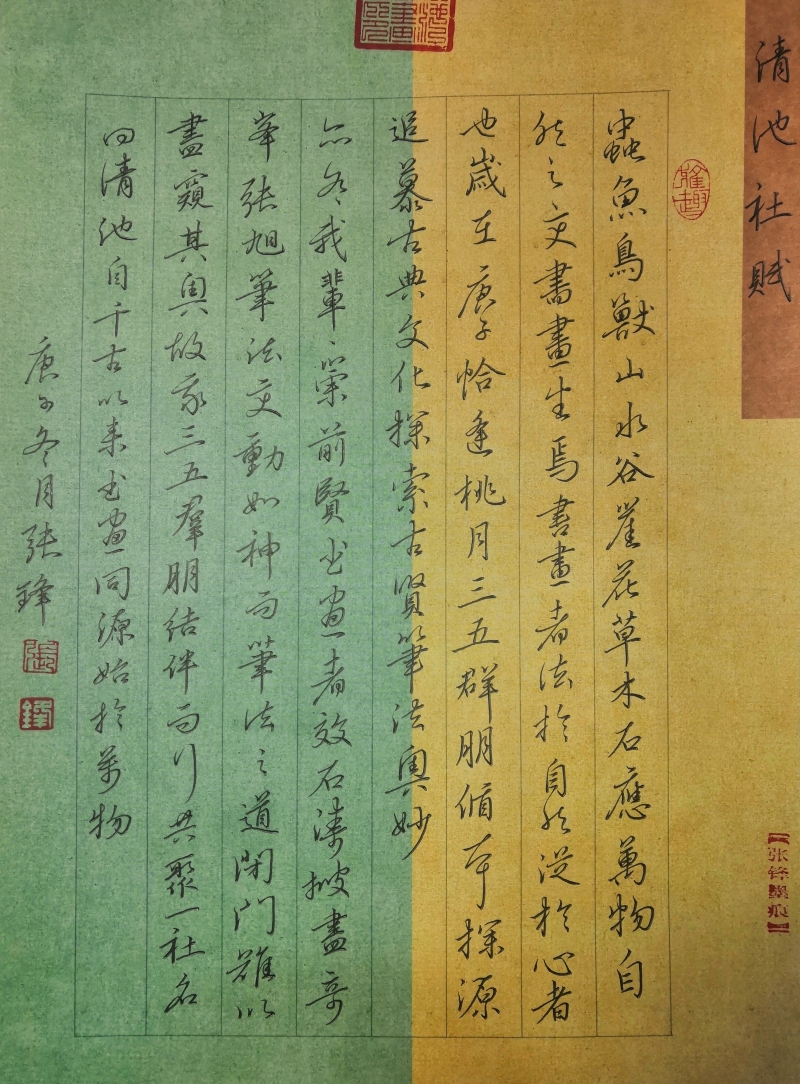 清池社賦
雅趣
蟲魚鳥獸山水谷崖花草木石應萬物自
然之変書畫生焉書畫者法於自然從於心者
也歲在庚子恰逢桃月三五群朋脩本探源
追慕古典文化探索古賢筆法奧妙
我輩崇前賢书画者效石濤搜盡奇
峯張旭筆法変動如神而筆法之道閉門難以
盡窺其奧故 三五羣朋结伴而行共聚一社名
曰清池自千古以来书画同源始於萬物
庚子冬月张鋒
張
鋒
【张锋墨痕】